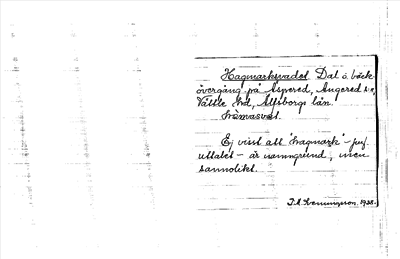 Hagmarksvadet Dal o. bäck
övergång på Aspered, Angered s:n,
Vättle hd, Älfsborgs län.
Ej visst att "hagmark" - jmf
uttalet - är namngrund, men
sannolikt.
1938.